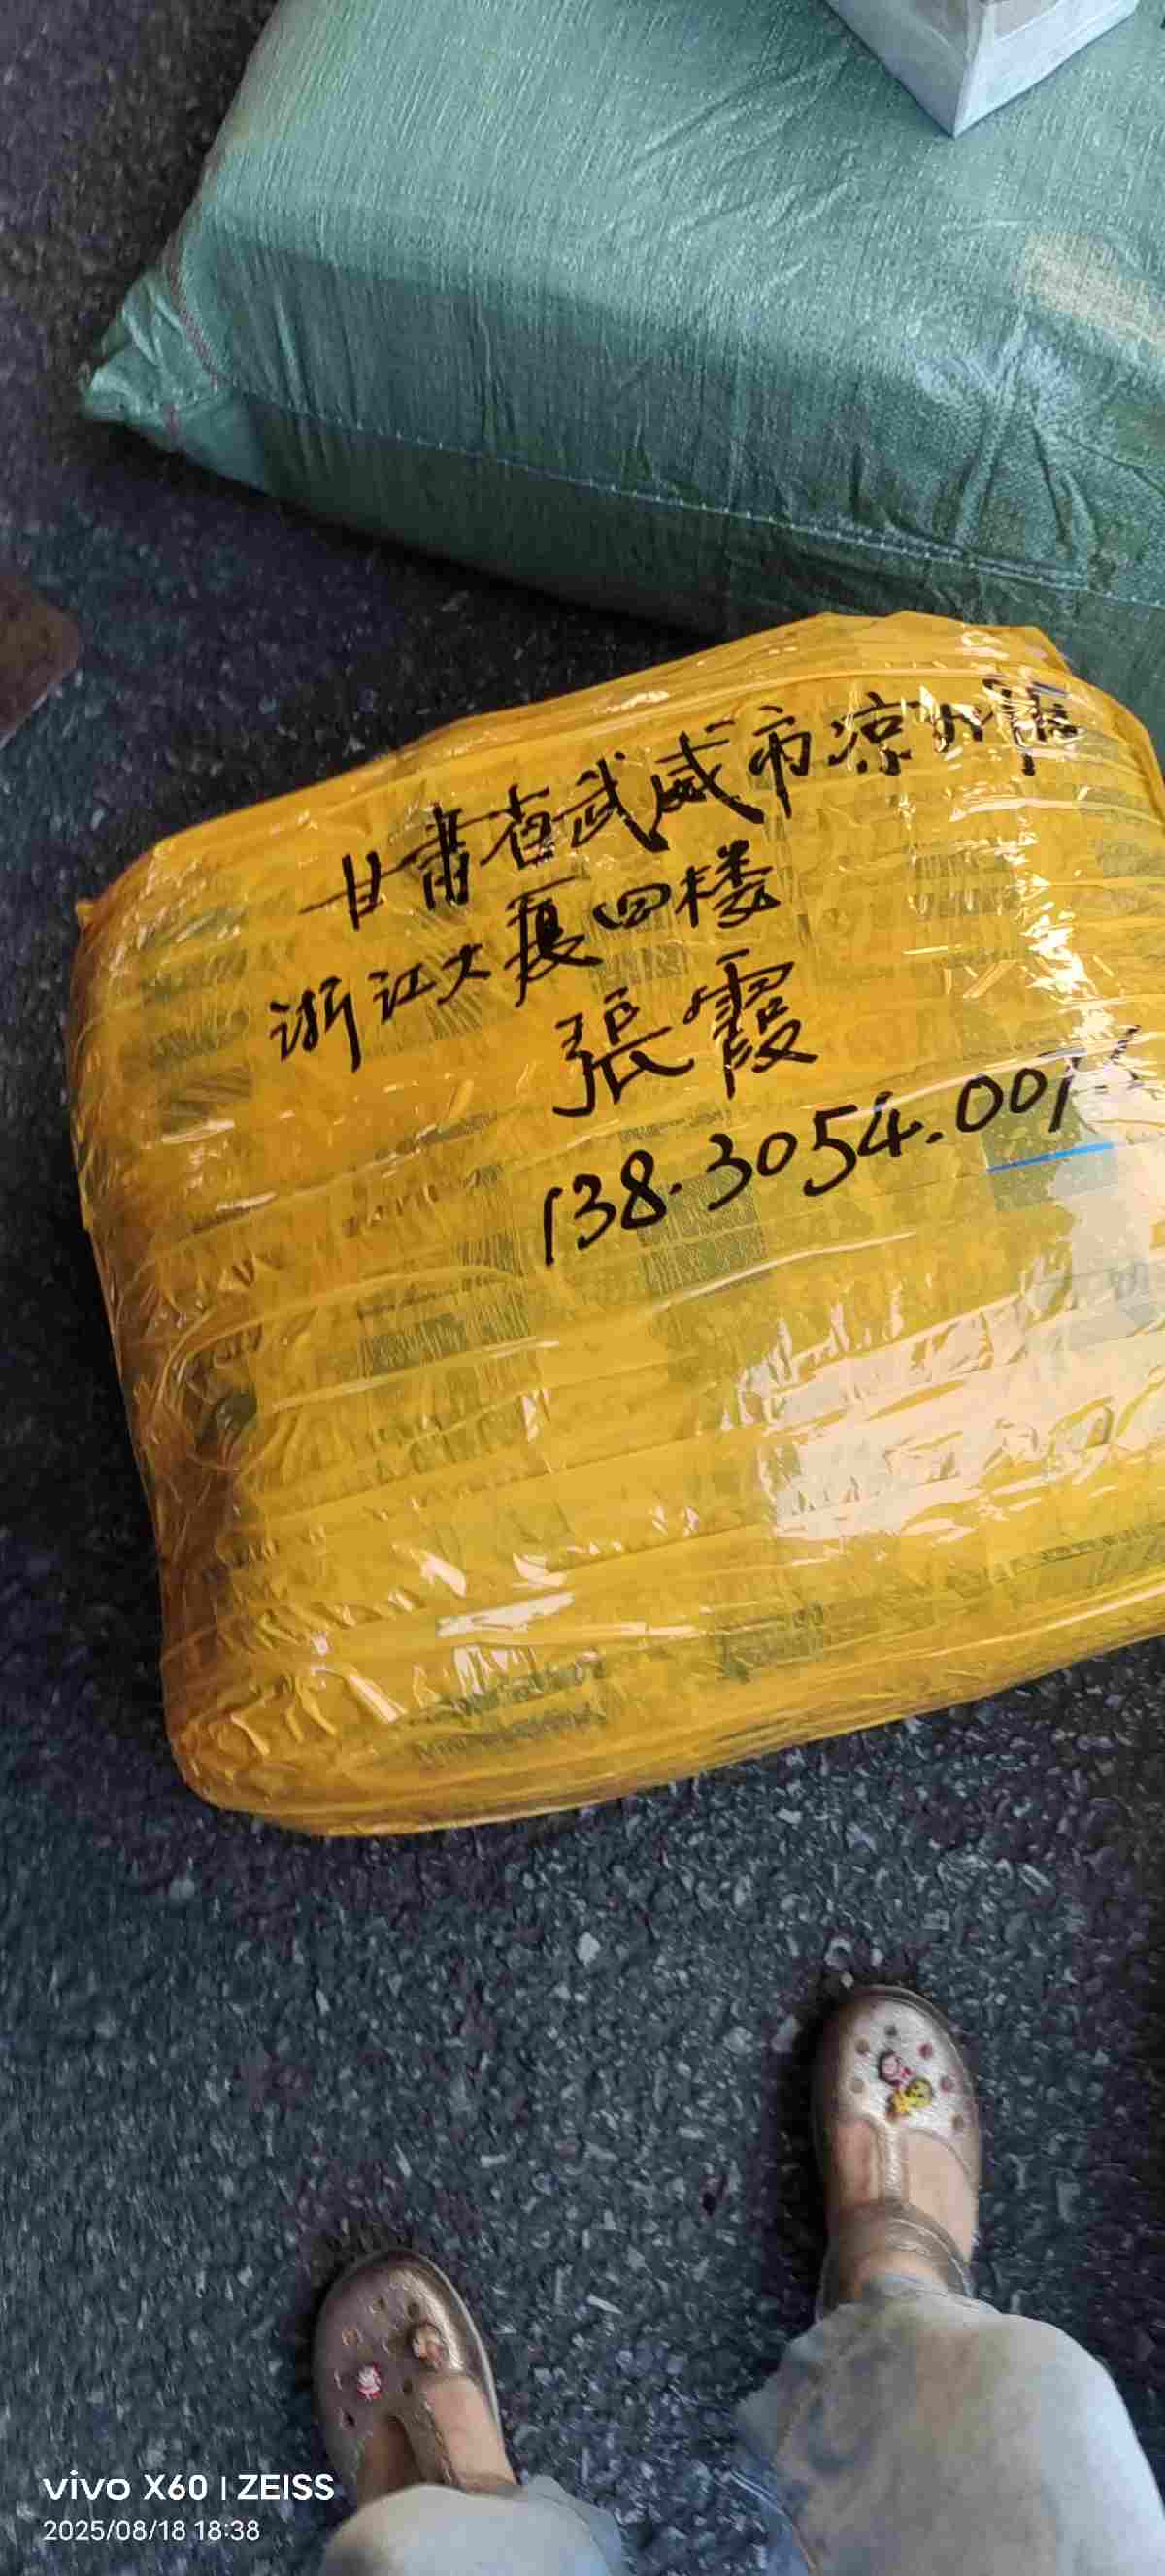 甘肃省武威市凉州
浙江大厦四楼
張霞
138.3054.001
vivo X60 | ZEISS
2025/08/18 18:38